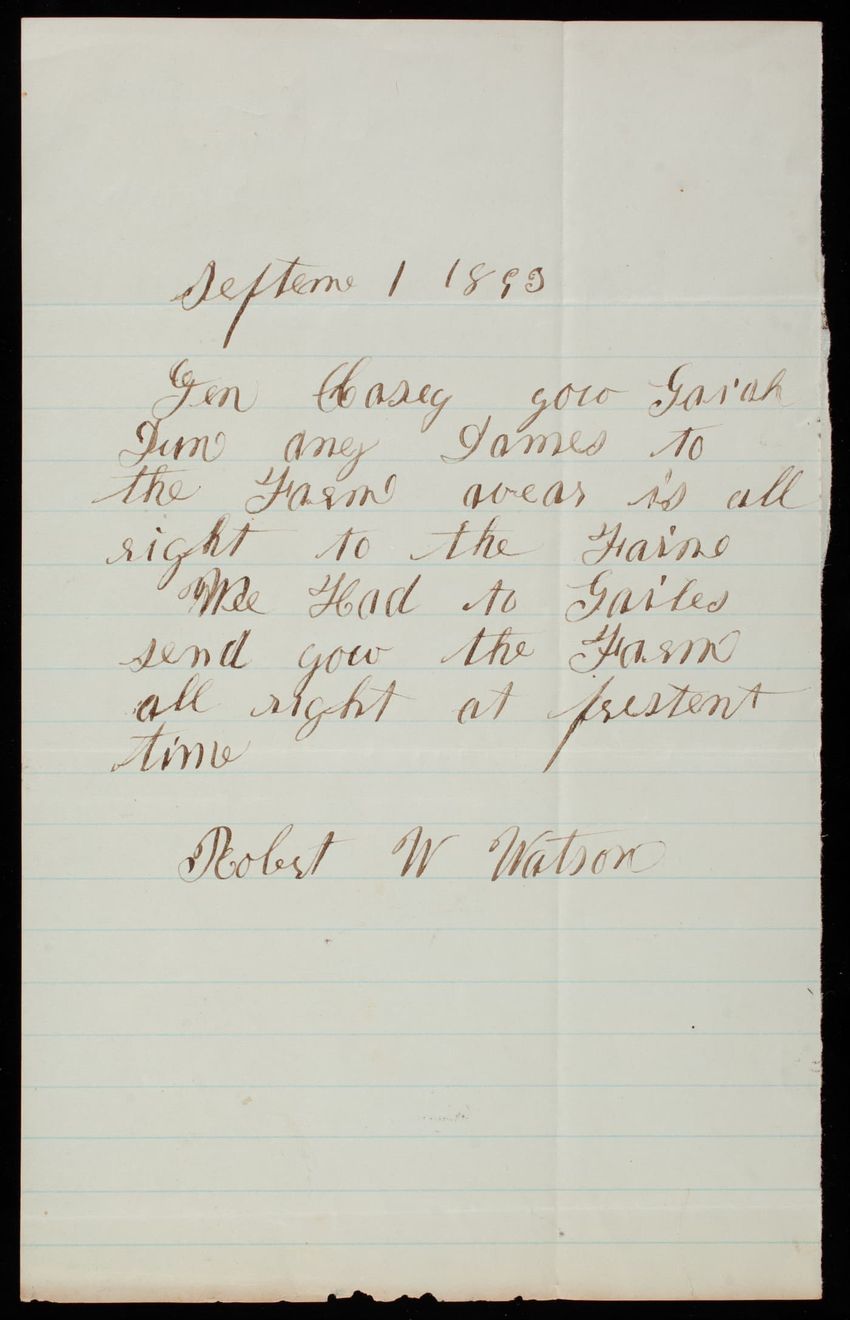 Septeme 1 1893
Gen Casey you Gaiah
Dun any Dames to
the Farm wear is all
right to the Fairme
Wee Had to Gailes
send you the Farm
all right at prestent
time
Robert W Watson